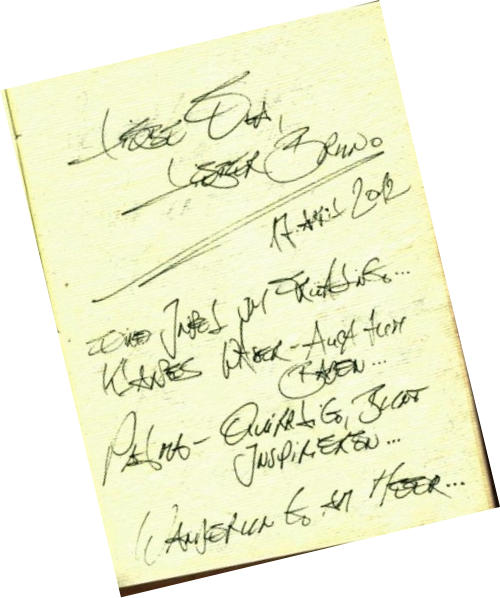 Liebe Ola,
Lieber Bruno
17. April 2012
Insel im Frühling...
Klares Wasser - Auch zum
Baden...
Palma - Quirlig, Bunt
Inspirieren...
Wanderung am Meer...